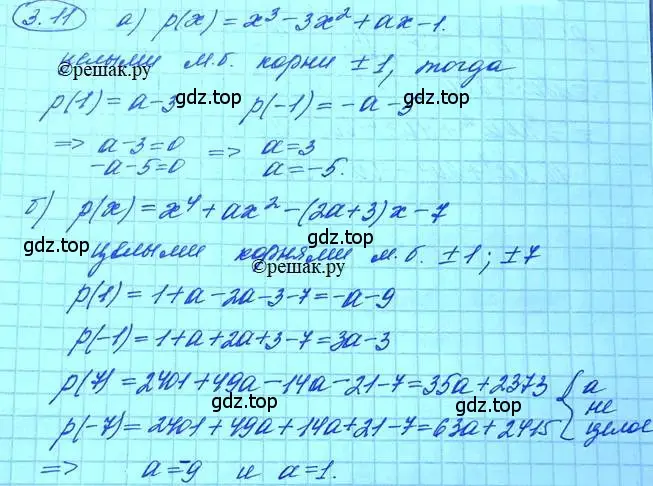 3.11 а) p(x) = x³ - 3x² + ax - 1.
целыми м.б. корни ±1, тогда
©решак.ру
p(1) = a - 3 gdz.top p(-1) = -a - 5 gdz.top
=> a - 3 = 0 => a = 3
-a - 5 = 0 a = -5.
gdz.top gdz.top
б) p(x) = x⁴ + ax² - (2a+3)x - 7
gdz.top целыми корнями м.б. ±1; ±7
©решак.ру
p(1) = 1 + a - 2a - 3 - 7 = -a - 9
p(-1) = 1 + a + 2a + 3 - 7 = 3a - 3
gdz.top gdz.top
p(7) = 2401 + 49a - 14a - 21 - 7 = 35a + 2373 { a
не
gdz.top gdz.top
p(-7) = 2401 + 49a + 14a + 21 - 7 = 63a + 2415 целое
=> a = -9 и a = 1.